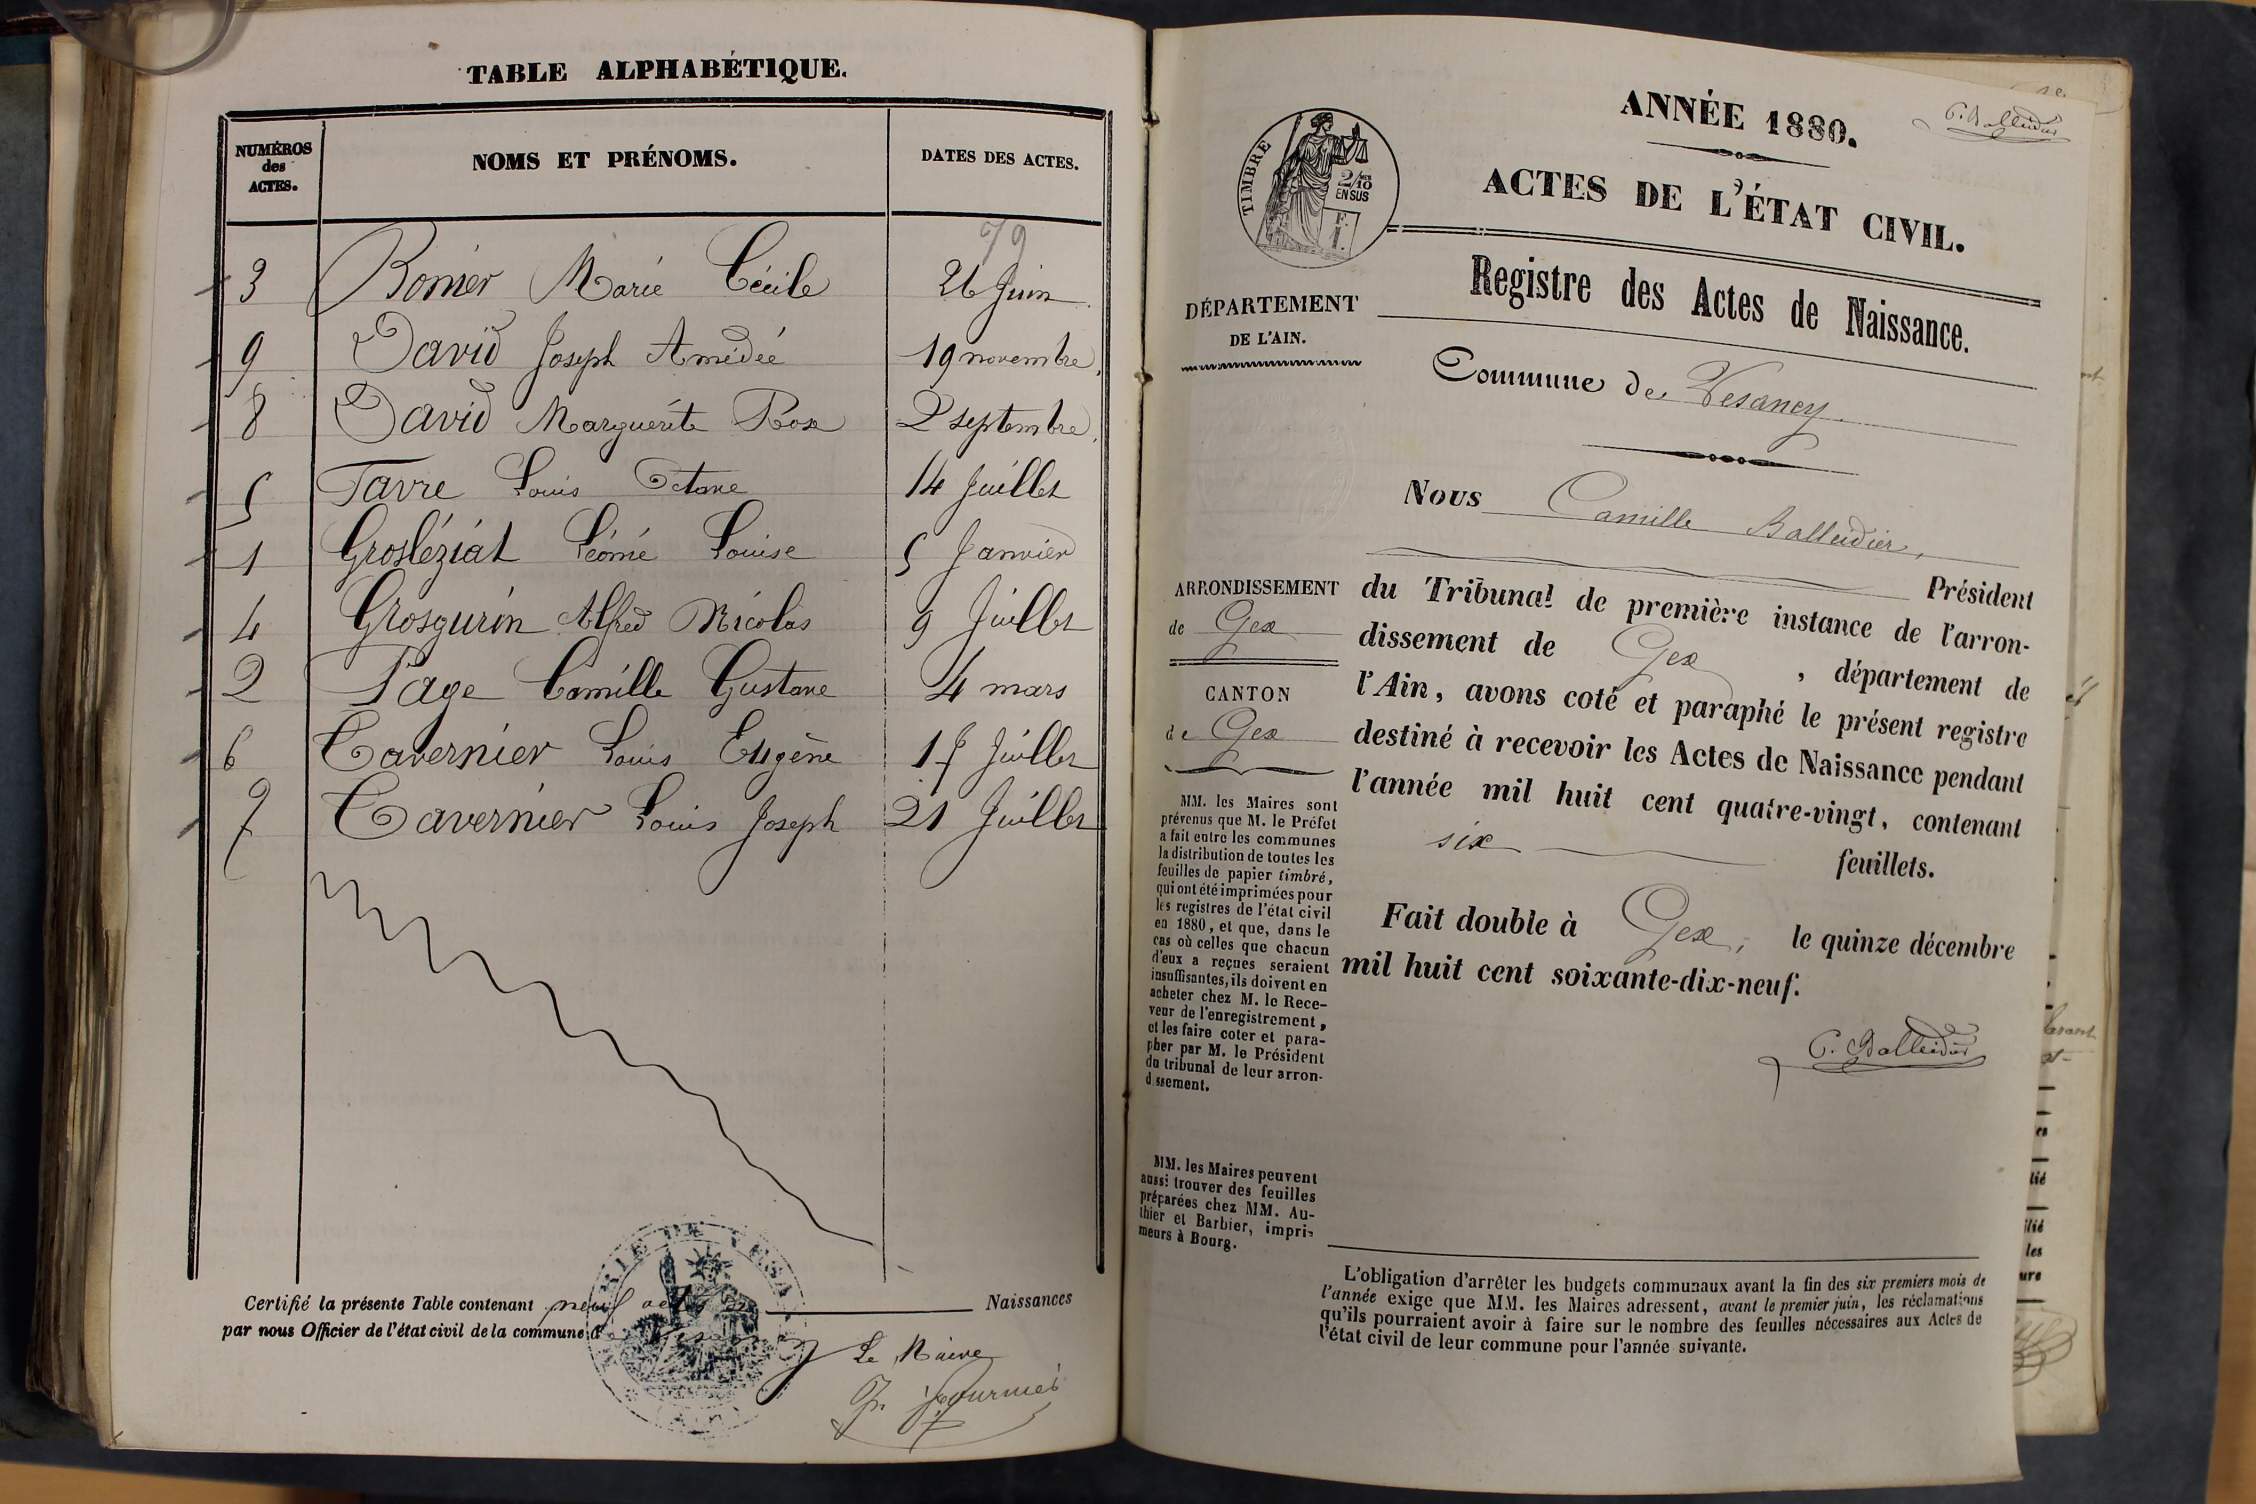 TABLE ALPHABÉTIQUE.
NUMÉROS
des
ACTES.
NOMS ET PRÉNOMS.
DATES DES ACTES.
79
3 Bonier Marie Cécile 26 Juin
9 David Joseph Amédée 19 novembre
8 David Marguerite Rose 2 septembre
5 Favre Louis Octave 14 Juillet
1 Grosléziat Léonie Louise 5 Janvier
4 Grosgurin Alfred Nicolas 9 Juillet
2 Page Camille Gustave 4 mars
6 Tavernier Louis Eugène 17 Juillet
7 Tavernier Louis Joseph 21 Juillet
Certifié la présente Table contenant neuf actes Naissances
par nous Officier de l'état civil de la commune de Vesancy
Le Maire
MAIRIE DE VESANCY
(AIN)
C. Balleidier
ANNÉE 1880.
ACTES DE L'ÉTAT CIVIL.
TIMBRE
2/10
EN SUS
Registre des Actes de Naissance.
DÉPARTEMENT
DE L'AIN.
Commune de Vesancy
Nous Camille Balleidier,
Président
du Tribunal de première instance de l'arron-
dissement de Gex, département de
l'Ain, avons coté et paraphé le présent registre
destiné à recevoir les Actes de Naissance pendant
l'année mil huit cent quatre-vingt, contenant
six feuillets.
Fait double à Gex, le quinze décembre
mil huit cent soixante-dix-neuf.
C. Balleidier
ARRONDISSEMENT
de Gex
CANTON
de Gex
MM. les Maires sont
prévenus que M. le Préfet
a fait entre les communes
la distribution de toutes les
feuilles de papier timbré,
qui ont été imprimées pour
les registres de l'état civil
en 1880, et que, dans le
cas où celles que chacun
d'eux a reçues seraient
insuffisantes, ils doivent en
acheter chez M. le Rece-
veur de l'enregistrement,
et les faire coter et para-
pher par M. le Président
du tribunal de leur arron-
dissement.
MM. les Maires peuvent
aussi trouver des feuilles
préparées chez MM. Au-
thier et Barbier, impri-
meurs à Bourg.
L'obligation d'arrêter les budgets communaux avant la fin des six premiers mois de
l'année exige que MM. les Maires adressent, avant le premier juin, les réclamations
qu'ils pourraient avoir à faire sur le nombre des feuilles nécessaires aux Actes de
l'état civil de leur commune pour l'année suivante.